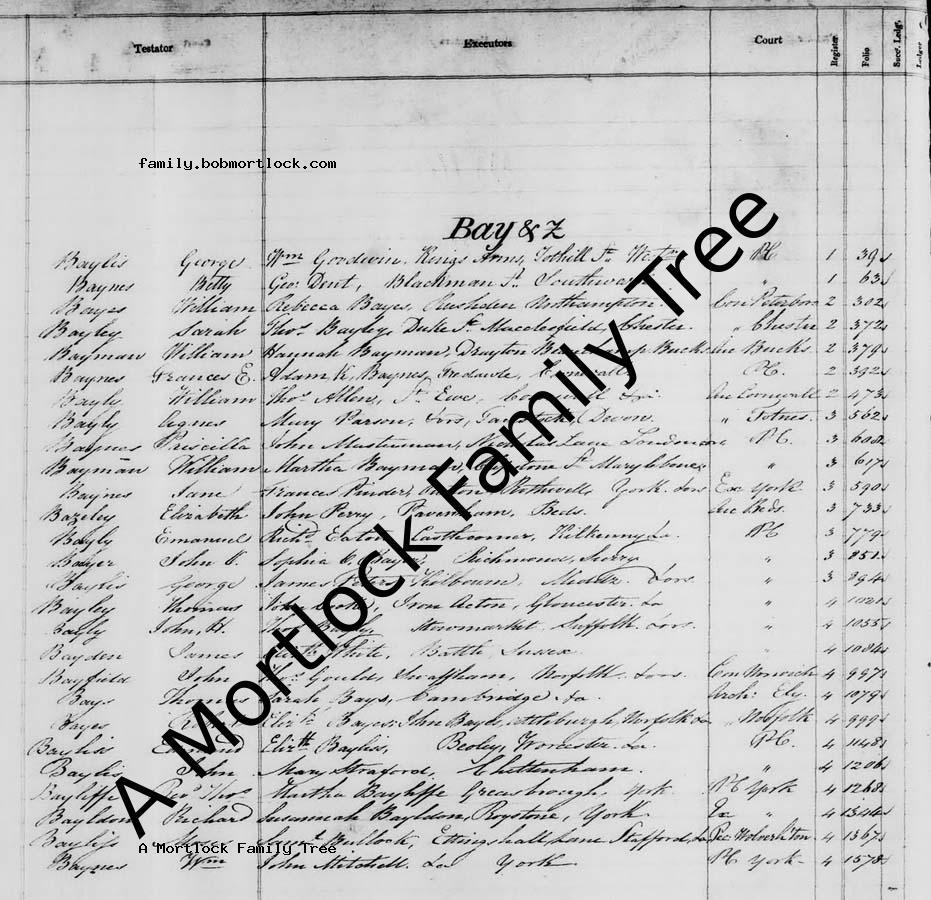 Testator Executors Court Register Folio Succ. Ledg.
family.bobmortlock.com
Bay & Z
Baylis George Wm Goodwin, Kings Arms, Tothill St. P.C. 1 39
Baynes Betty Geo. Dent, Blackman St. Southwark " 1 63
Bayes William Rebecca Bayes, Rushden Northampton. Con Peterboro 2 302
Bayley Sarah Thos. Bayley, Duke St. Macclesfield, Chester. " Chester 2 372
Bayman William Hannah Bayman, Drayton Bucks Arc Bucks 2 379
Baynes Frances E. Adam K. Baynes P.C. 2 392
Bayly William Thos. Allen, St. Ewe, Arc Cornwall 2 473
Bayly Agnes Mary Parson, Devon. " Totnes 3 562
Baynes Priscilla John Masterman, Nicholas Lane London P.C. 3 608
Bayman William Martha Bayman, St. Marylebone " 3 617
Baynes Jane Frances Pinder, Rothwell, York. Exc York 3 590
Bazeley Elizabeth John Perry, Pavenham, Beds. Arc Beds. 3 733
Bayly Emanuel Richd. Eaton, Kilkenny P.C. 3 779
Bayer John C. Sophia C. Richmond, Surry " 3 851
Baylis George James Holbourn, Middx " 3 894
Bayley Thomas John Iron Acton, Gloucester " 4 1021
Bayly John, H. Stowmarket Suffolk " 4 1055
Bayden James White, Battle, Sussex " 4 1084
Bayfield John Gould, Swaffham, Norfolk Con Norwich 4 997
Bays Thomas Sarah Bays, Cambridge Arch. Ely 4 1079
Bayes Elizth. Bayes, John Bayes, Attleburgh, Norfolk " Norfolk 4 999
Bayliss Edmund Elizth. Bayliss, Beoley, Worcester P.C. 4 1148
Baylis John Mary Straford, Cheltenham. " 4 1206
Bayliffe Revd. Thos. Martha Bayliffe Greasbrough, York P.C. York 4 1268
Bayldon Richard Susannah Bayldon, Roystone, York Ex " 4 1346
Bayliss Bullock, Ettingshall Lane Stafford, Pec. Wolverh'ton 4 1367
A Mortlock Family Tree
Baynes Wm John Mitchell York P.C. York 4 1578
A Mortlock Family Tree